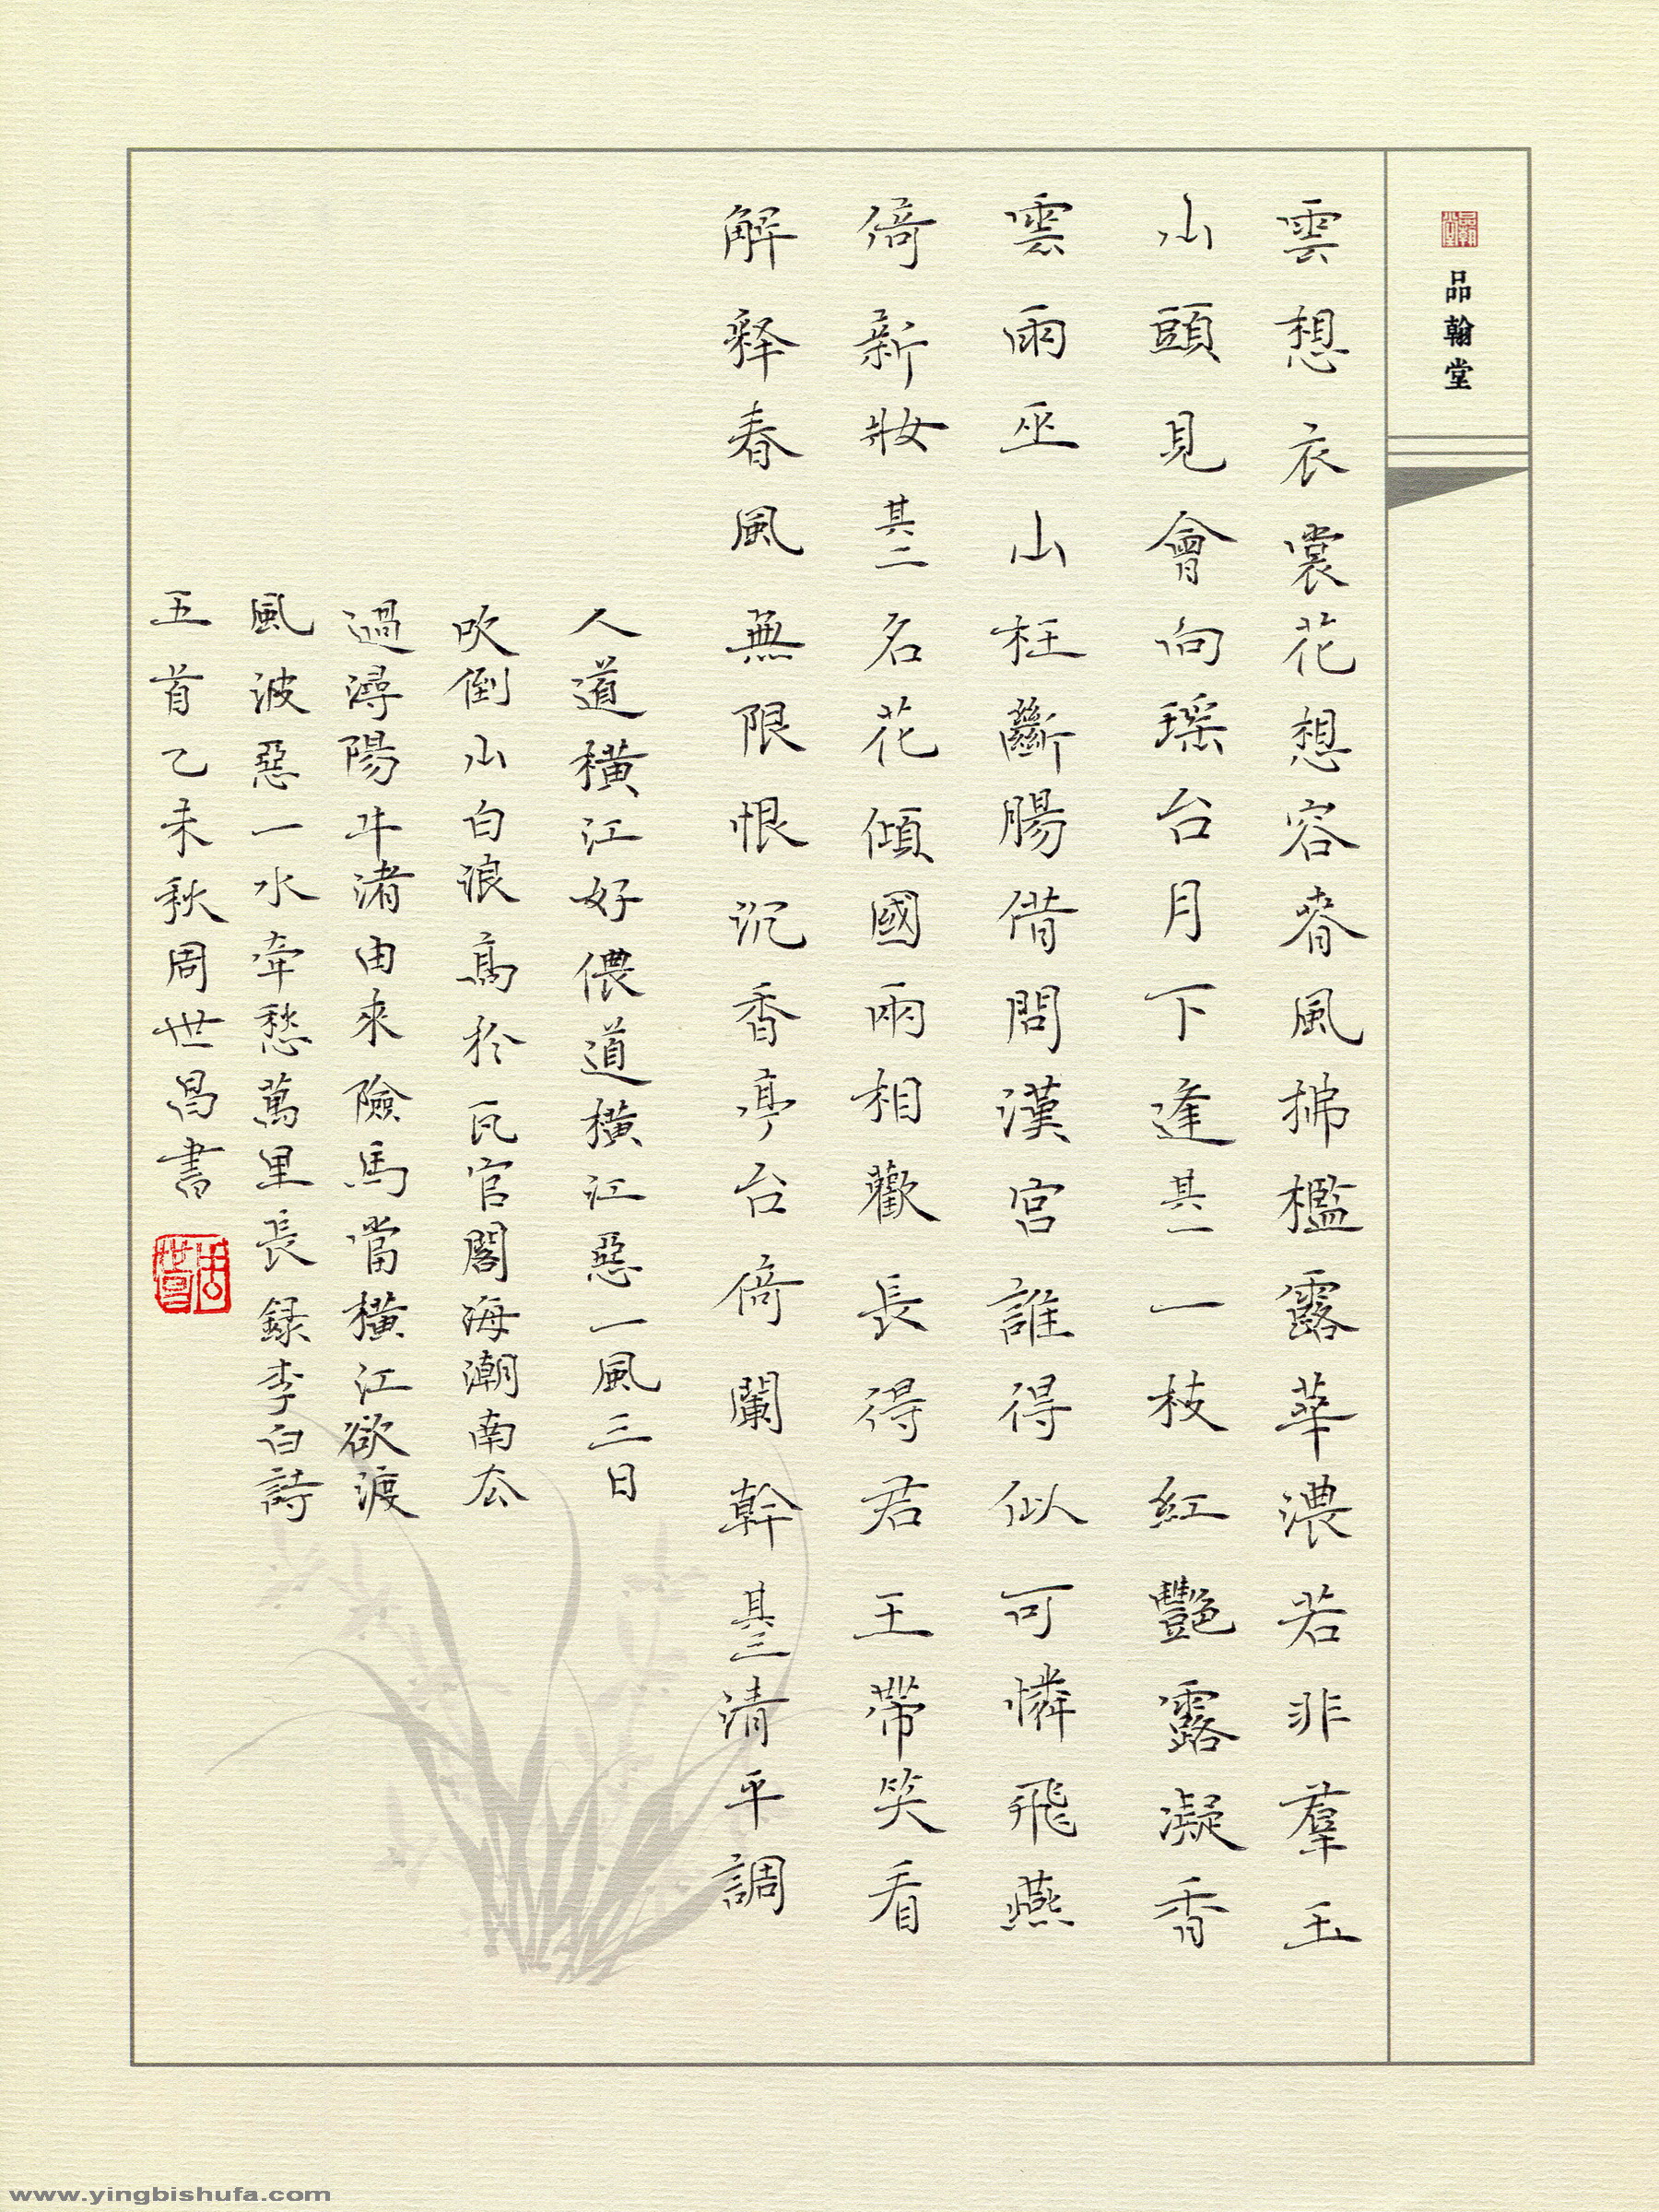 品翰堂
品翰堂
雲想衣裳花想容春風拂檻露華濃若非羣玉
山頭見會向瑶台月下逢其一一枝紅艷露凝香
雲雨巫山枉斷腸借問漢宮誰得似可憐飛燕
倚新妝其二名花傾國兩相歡長得君王帶笑看
解释春風無限恨沉香亭台倚闌幹其三清平調
人道橫江好儂道橫江惡一風三日
吹倒山白浪高於瓦官閣海潮南去
過潯陽牛渚由來險馬當橫江欲渡
風波惡一水牽愁萬里長録李白詩
五首乙未秋周世昌書
周世昌
www.yingbishufa.com